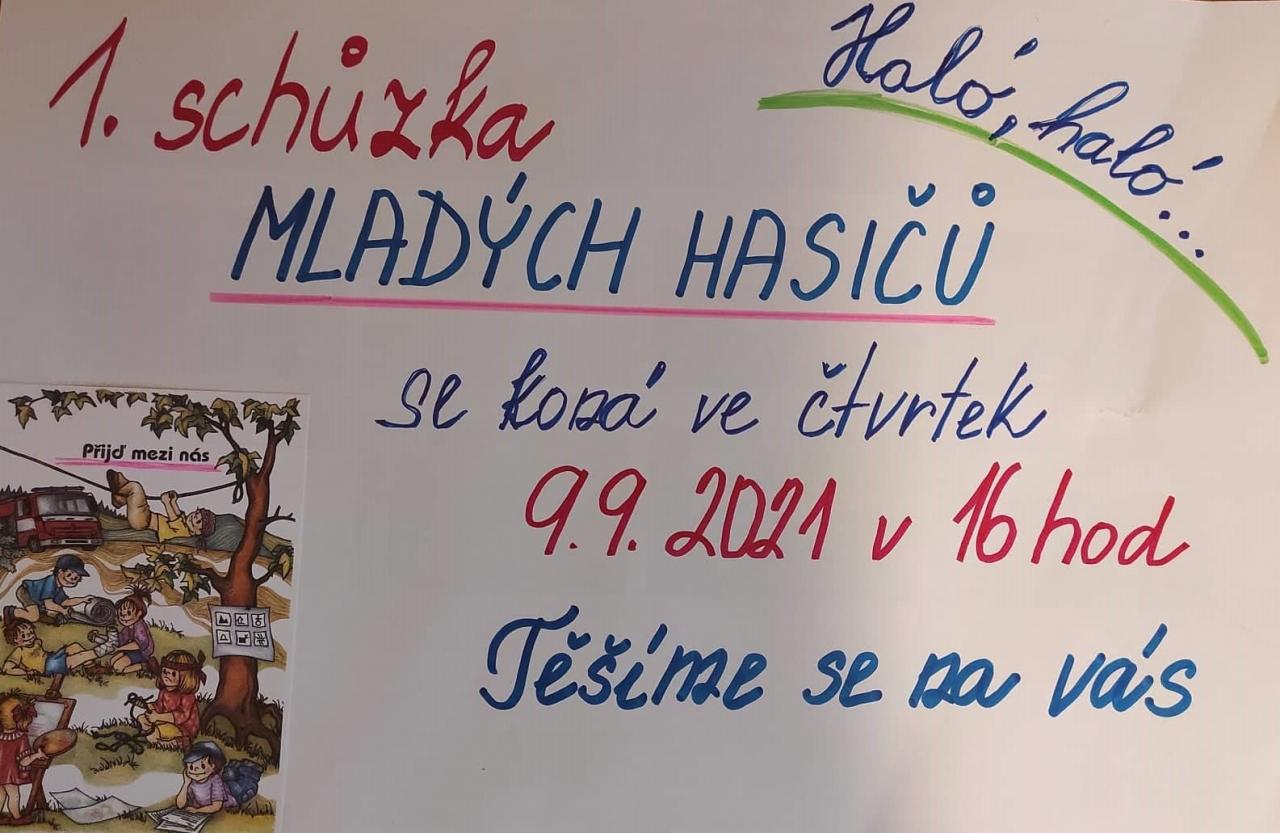 Haló, haló...
1. schůzka
MLADÝCH HASIČŮ
se koná ve čtvrtek
9.9.2021 v 16 hod
Těšíme se na vás
Přijď mezi nás